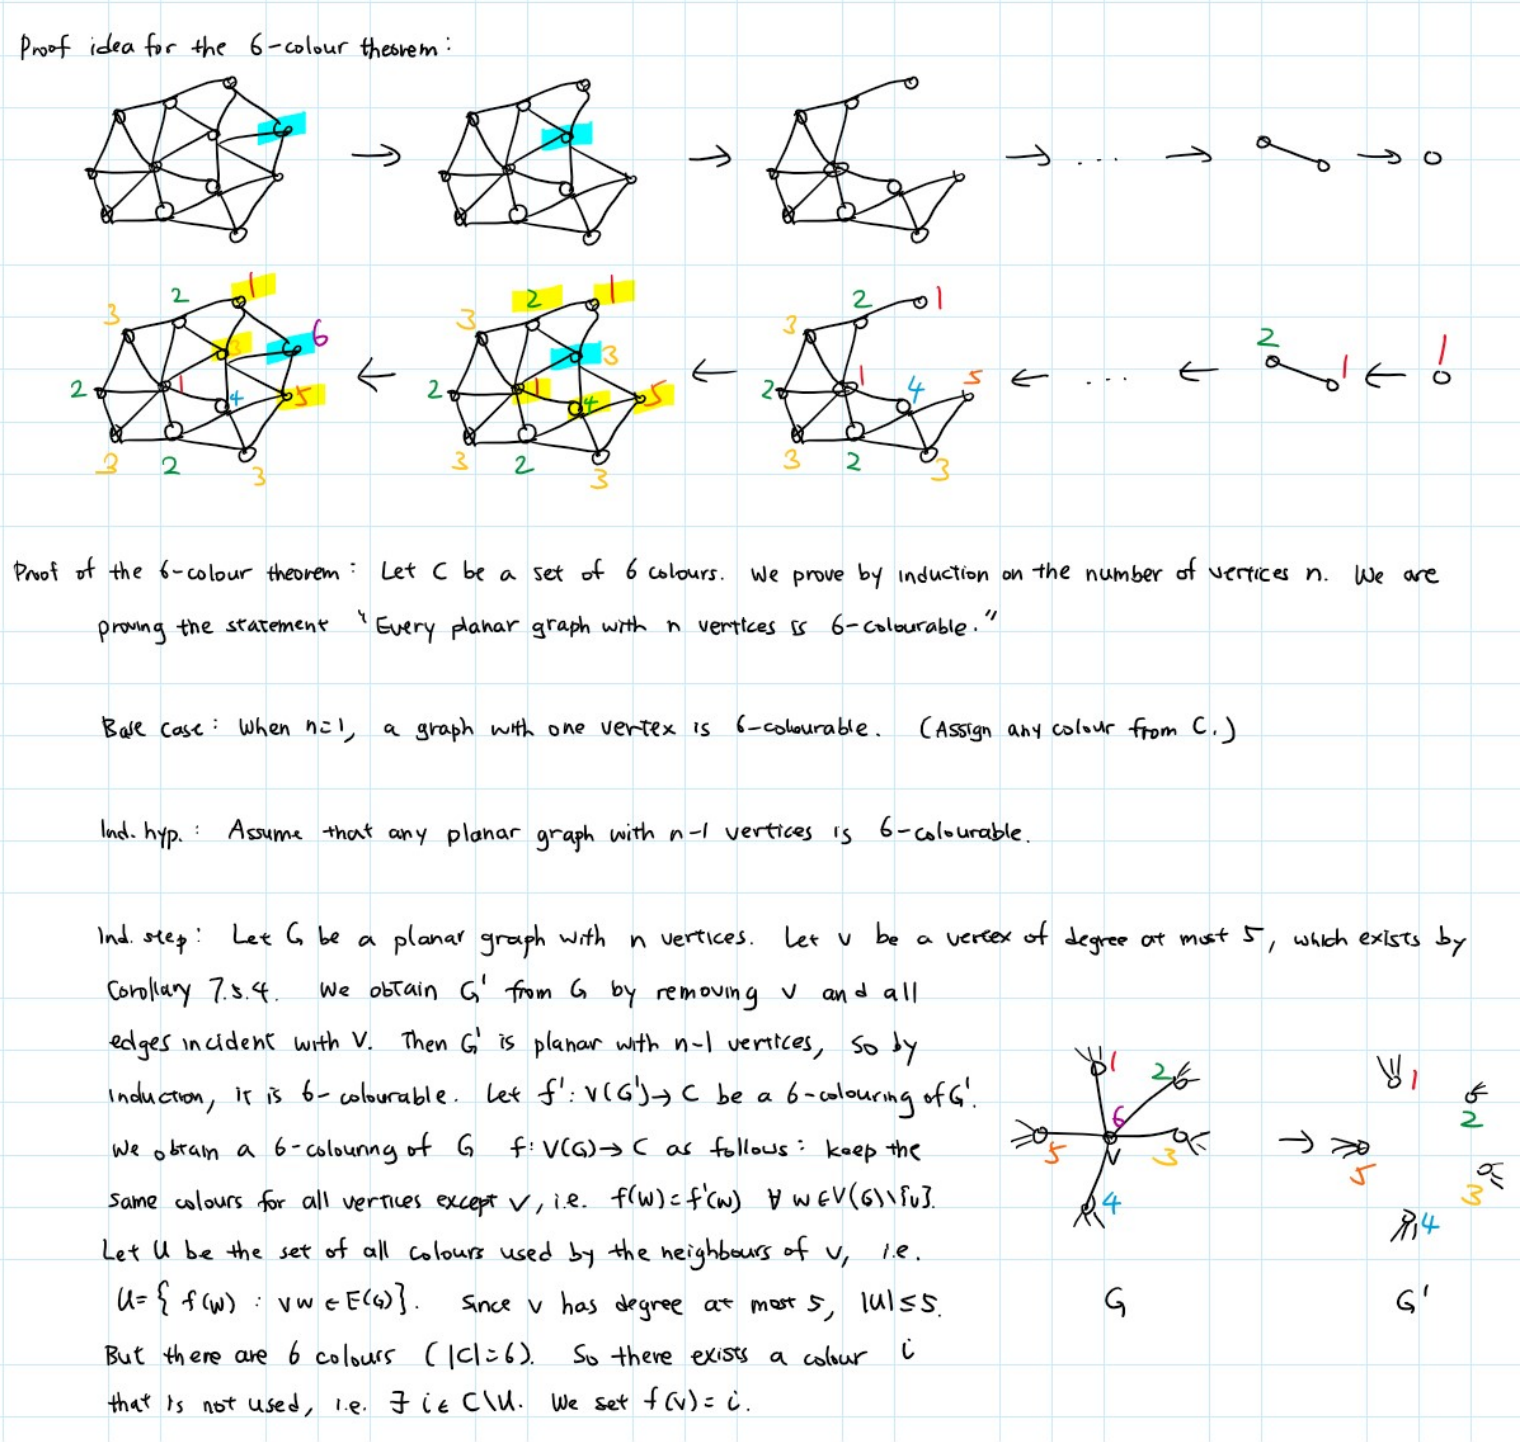 Proof idea for the 6-colour theorem:
2 1
3 6
3
2 1 4 5
3 2 3
2 1
3 3
2 1 4 5
3 2 3
2 1
3
2 1 4 5
3 2 3
2 1
1
Proof of the 6-colour theorem: Let C be a set of 6 colours. We prove by induction on the number of vertices n. We are
proving the statement "Every planar graph with n vertices is 6-colourable."
Base case: When n=1, a graph with one vertex is 6-colourable. (Assign any colour from C.)
Ind. hyp.: Assume that any planar graph with n-1 vertices is 6-colourable.
Ind. step: Let G be a planar graph with n vertices. Let v be a vertex of degree at most 5, which exists by
Corollary 7.5.4. We obtain G' from G by removing v and all
edges incident with v. Then G' is planar with n-1 vertices, so by
induction, it is 6-colourable. Let f': V(G')→C be a 6-colouring of G'.
We obtain a 6-colouring of G f: V(G)→C as follows: keep the
same colours for all vertices except v, i.e. f(w)=f'(w) ∀ w∈V(G)\{v}.
Let U be the set of all colours used by the neighbours of v, i.e.
U={ f(w) : vw ∈ E(G)}. Since v has degree at most 5, |U|≤5.
But there are 6 colours (|C|=6). So there exists a colour i
that is not used, i.e. ∃ i∈ C\U. We set f(v)=i.
1 2
6
5 v 3
4
G
1
2
5
3
4
G'